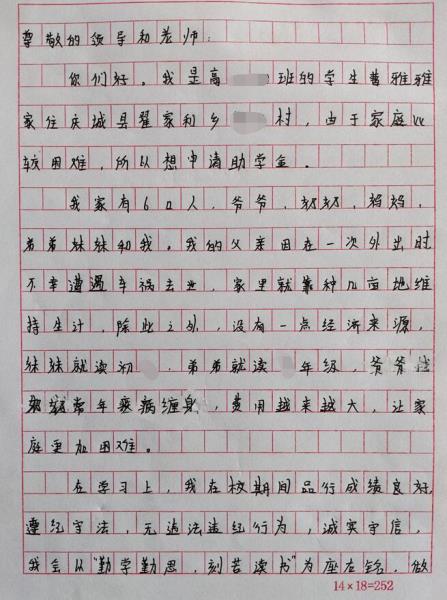 尊敬的领导和老师:
你们好。我是高 班的学生 雅雅
家住庆城县翟家河乡 村,由于家庭比
较困难,所以想申请助学金。
我家有6口人,爷爷,奶奶,妈妈,
弟弟妹妹和我。我的父亲因在一次外出时
不幸遭遇车祸去世,家里就靠种几亩地维
持生计,除此之外,没有一点经济来源,
妹妹就读初 ,弟弟就读 年级,爷爷
奶奶常年疾病缠身,费用越来越大,让家
庭更加困难。
在学习上,我在校期间品行成绩良好,
遵纪守法,无违法违纪行为,诚实守信,
我会以"勤学勤思,刻苦读书"为座右铭,做
14×18=252